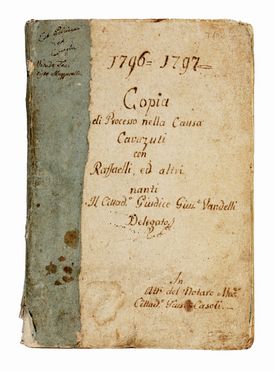 1796= 1797=
Copia
di Processo nella Causa
Cavazuti
con
Raffaelli, ed altri
nanti
Il Cittad.º Giudice Giu.e Vandelli
Delegato
In
Atti del Notaro
Cittad.º Casoli